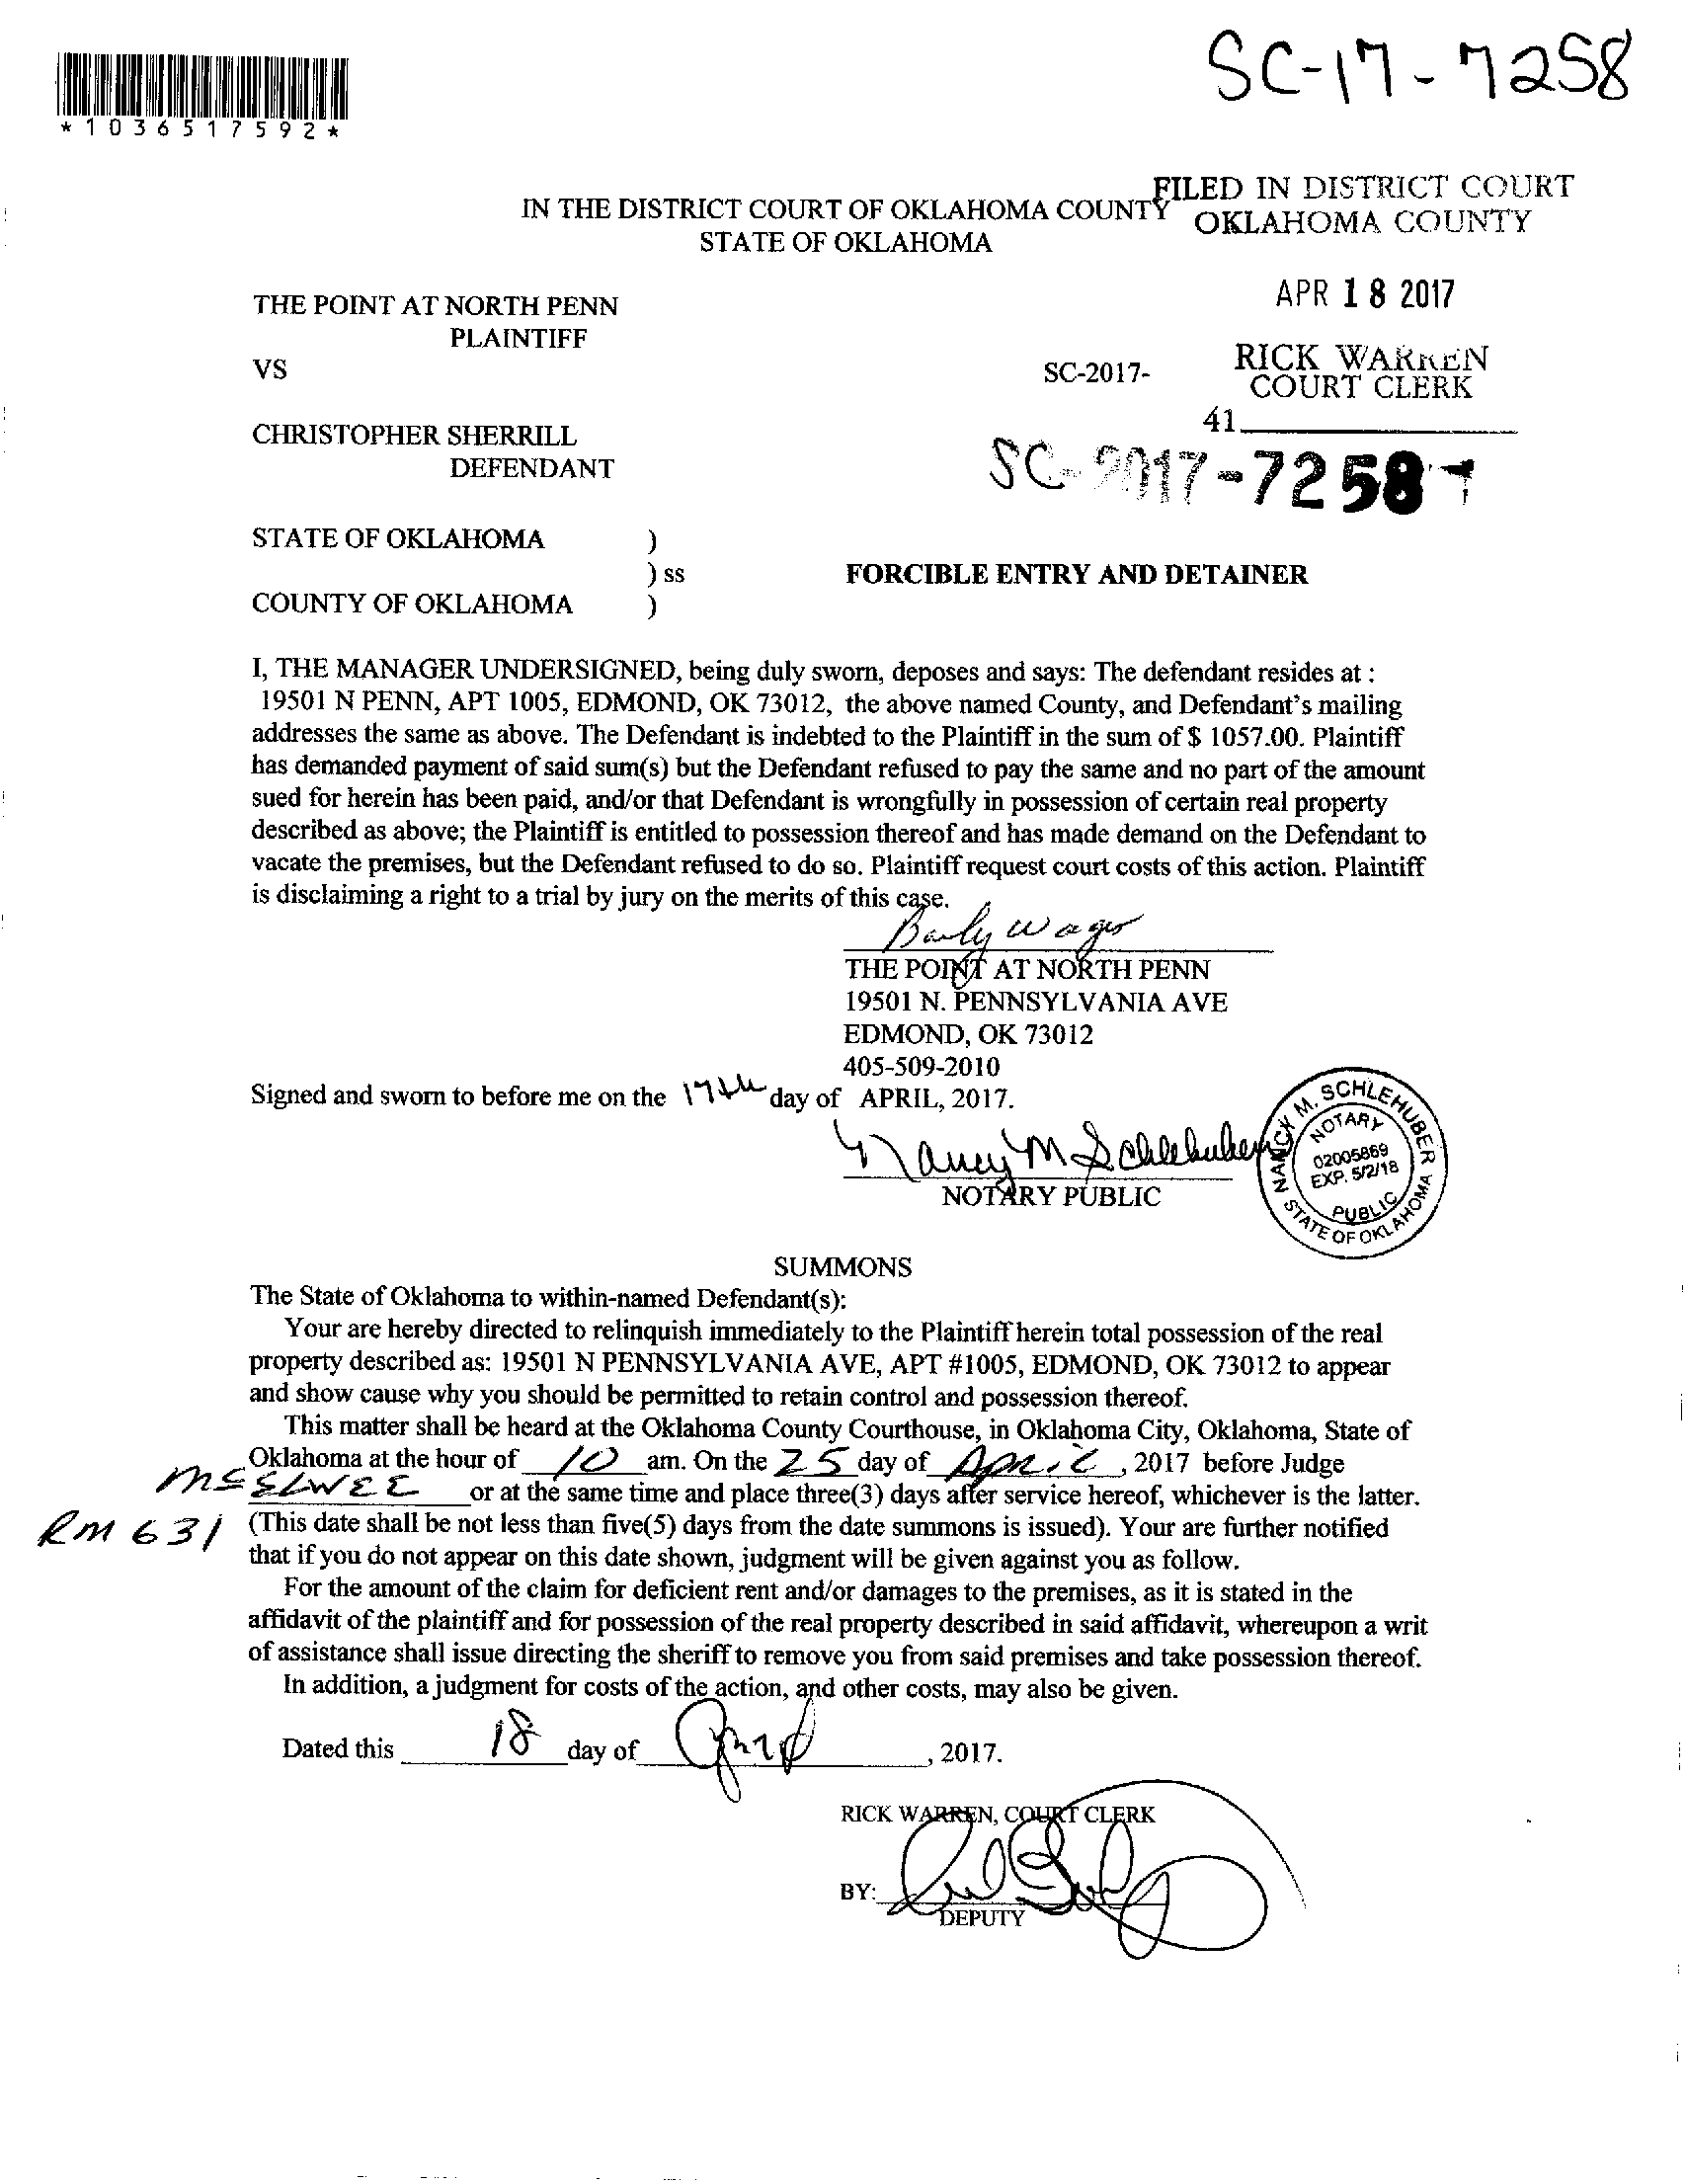 SC-17-7258
*1036517592*
FILED IN DISTRICT COURT
OKLAHOMA COUNTY
IN THE DISTRICT COURT OF OKLAHOMA COUNTY
STATE OF OKLAHOMA
APR 18 2017
THE POINT AT NORTH PENN
PLAINTIFF
VS
SC-2017-
RICK WARREN
COURT CLERK
41
CHRISTOPHER SHERRILL
DEFENDANT
SC-2017-7258
STATE OF OKLAHOMA )
) ss
FORCIBLE ENTRY AND DETAINER
COUNTY OF OKLAHOMA )
I, THE MANAGER UNDERSIGNED, being duly sworn, deposes and says: The defendant resides at :
19501 N PENN, APT 1005, EDMOND, OK 73012, the above named County, and Defendant's mailing
addresses the same as above. The Defendant is indebted to the Plaintiff in the sum of $ 1057.00. Plaintiff
has demanded payment of said sum(s) but the Defendant refused to pay the same and no part of the amount
sued for herein has been paid, and/or that Defendant is wrongfully in possession of certain real property
described as above; the Plaintiff is entitled to possession thereof and has made demand on the Defendant to
vacate the premises, but the Defendant refused to do so. Plaintiff request court costs of this action. Plaintiff
is disclaiming a right to a trial by jury on the merits of this case.
THE POINT AT NORTH PENN
19501 N. PENNSYLVANIA AVE
EDMOND, OK 73012
405-509-2010
Signed and sworn to before me on the 17th day of APRIL, 2017.
Nancy M Schlehuber
NOTARY PUBLIC
NANCY M. SCHLEHUBER
NOTARY
02005869
EXP. 5/2/18
PUBLIC
STATE OF OKLAHOMA
SUMMONS
The State of Oklahoma to within-named Defendant(s):
Your are hereby directed to relinquish immediately to the Plaintiff herein total possession of the real
property described as: 19501 N PENNSYLVANIA AVE, APT #1005, EDMOND, OK 73012 to appear
and show cause why you should be permitted to retain control and possession thereof.
This matter shall be heard at the Oklahoma County Courthouse, in Oklahoma City, Oklahoma, State of
Oklahoma at the hour of 10 am. On the 25 day of April, 2017 before Judge
McELWEE or at the same time and place three(3) days after service hereof, whichever is the latter.
RM 631 (This date shall be not less than five(5) days from the date summons is issued). Your are further notified
that if you do not appear on this date shown, judgment will be given against you as follow.
For the amount of the claim for deficient rent and/or damages to the premises, as it is stated in the
affidavit of the plaintiff and for possession of the real property described in said affidavit, whereupon a writ
of assistance shall issue directing the sheriff to remove you from said premises and take possession thereof.
In addition, a judgment for costs of the action, and other costs, may also be given.
Dated this 18 day of April, 2017.
RICK WARREN, COURT CLERK
BY:
DEPUTY